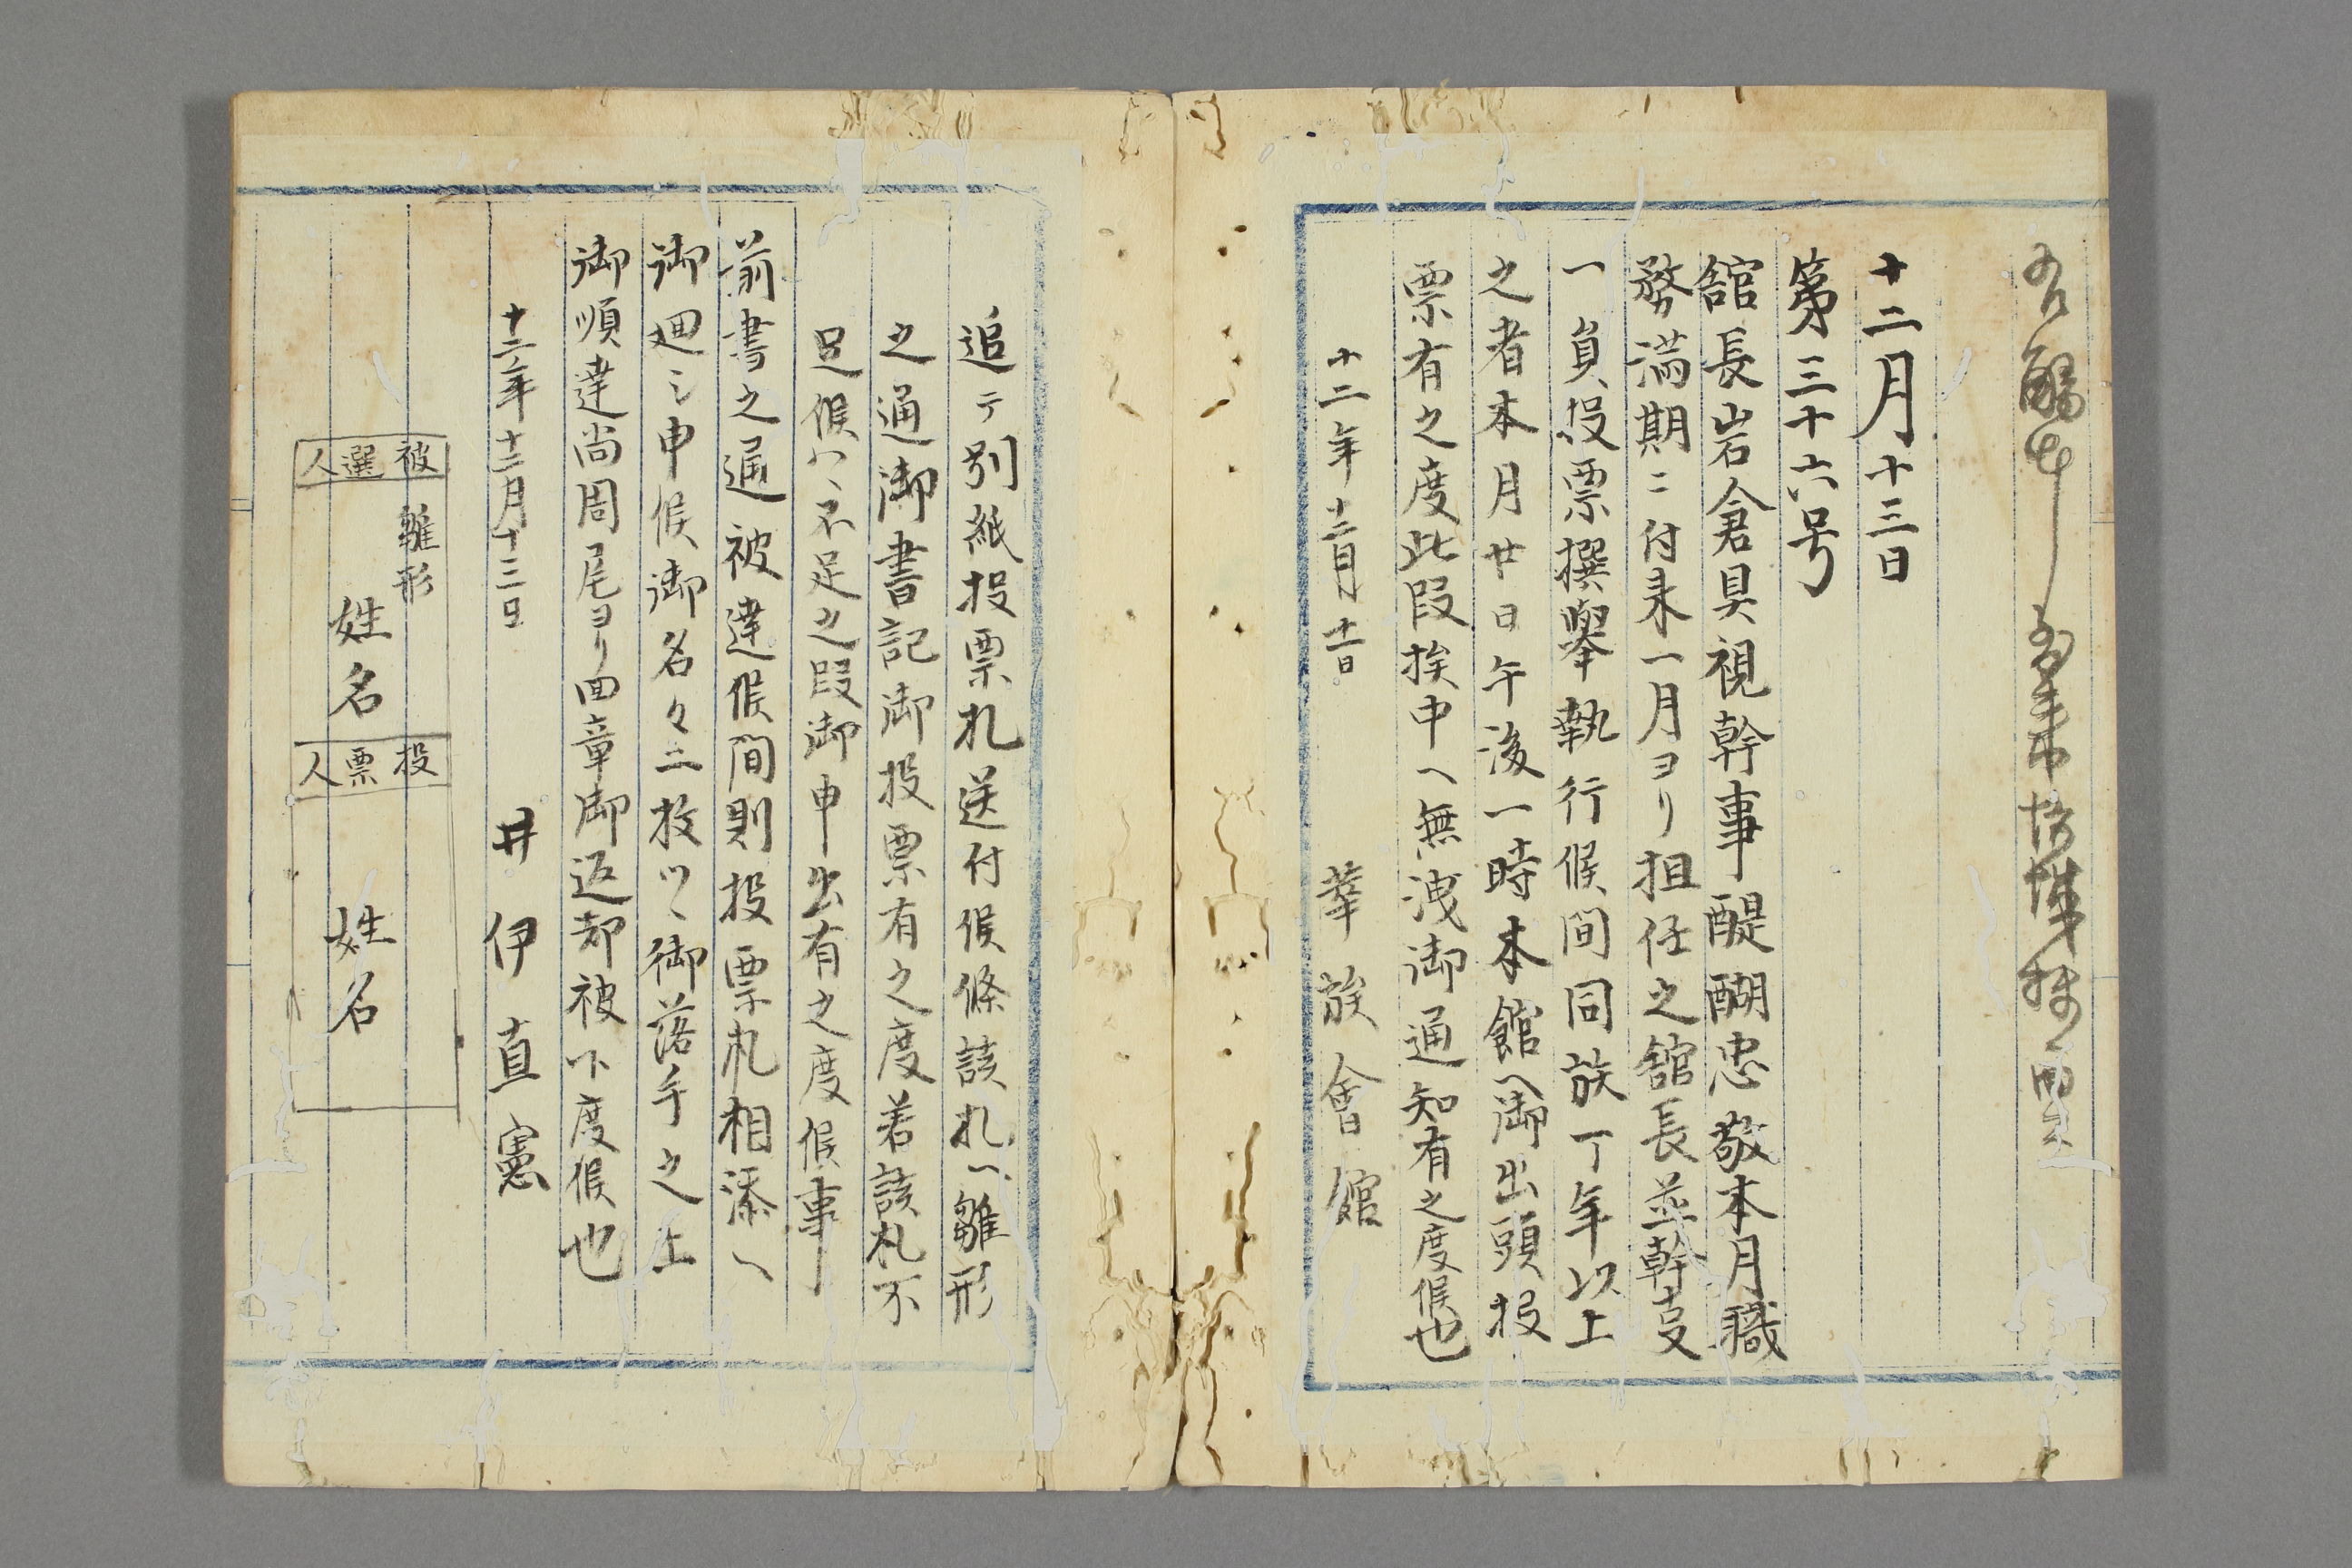 十二月十三日
第三十六号
舘長岩倉具視幹事醍醐忠敬本月職
務満期ニ付来一月ヨリ担任之舘長並幹叓
一員投票撰擧執行候間同族丁年以上
之者本月廿日午後一時本館ヘ御出頭投
票有之度此段挨申ヘ無洩御通知有之度候也
十二年十二月十一日
華族會舘
追テ別紙投票札送付候條該札ヘ雛形
之通御書記御投票有之度若該札不
足候ハヽ不足之段御申出有之度候事
前書之通被達候間則投票札相添ヘ
御廻シ申候御名々二枚ツヽ御落手之上
御順達尚周尾ヨリ回章御返却被下度候也
十二年十二月十三日
井伊直憲
雛形
被選人
姓名
投票人
姓名